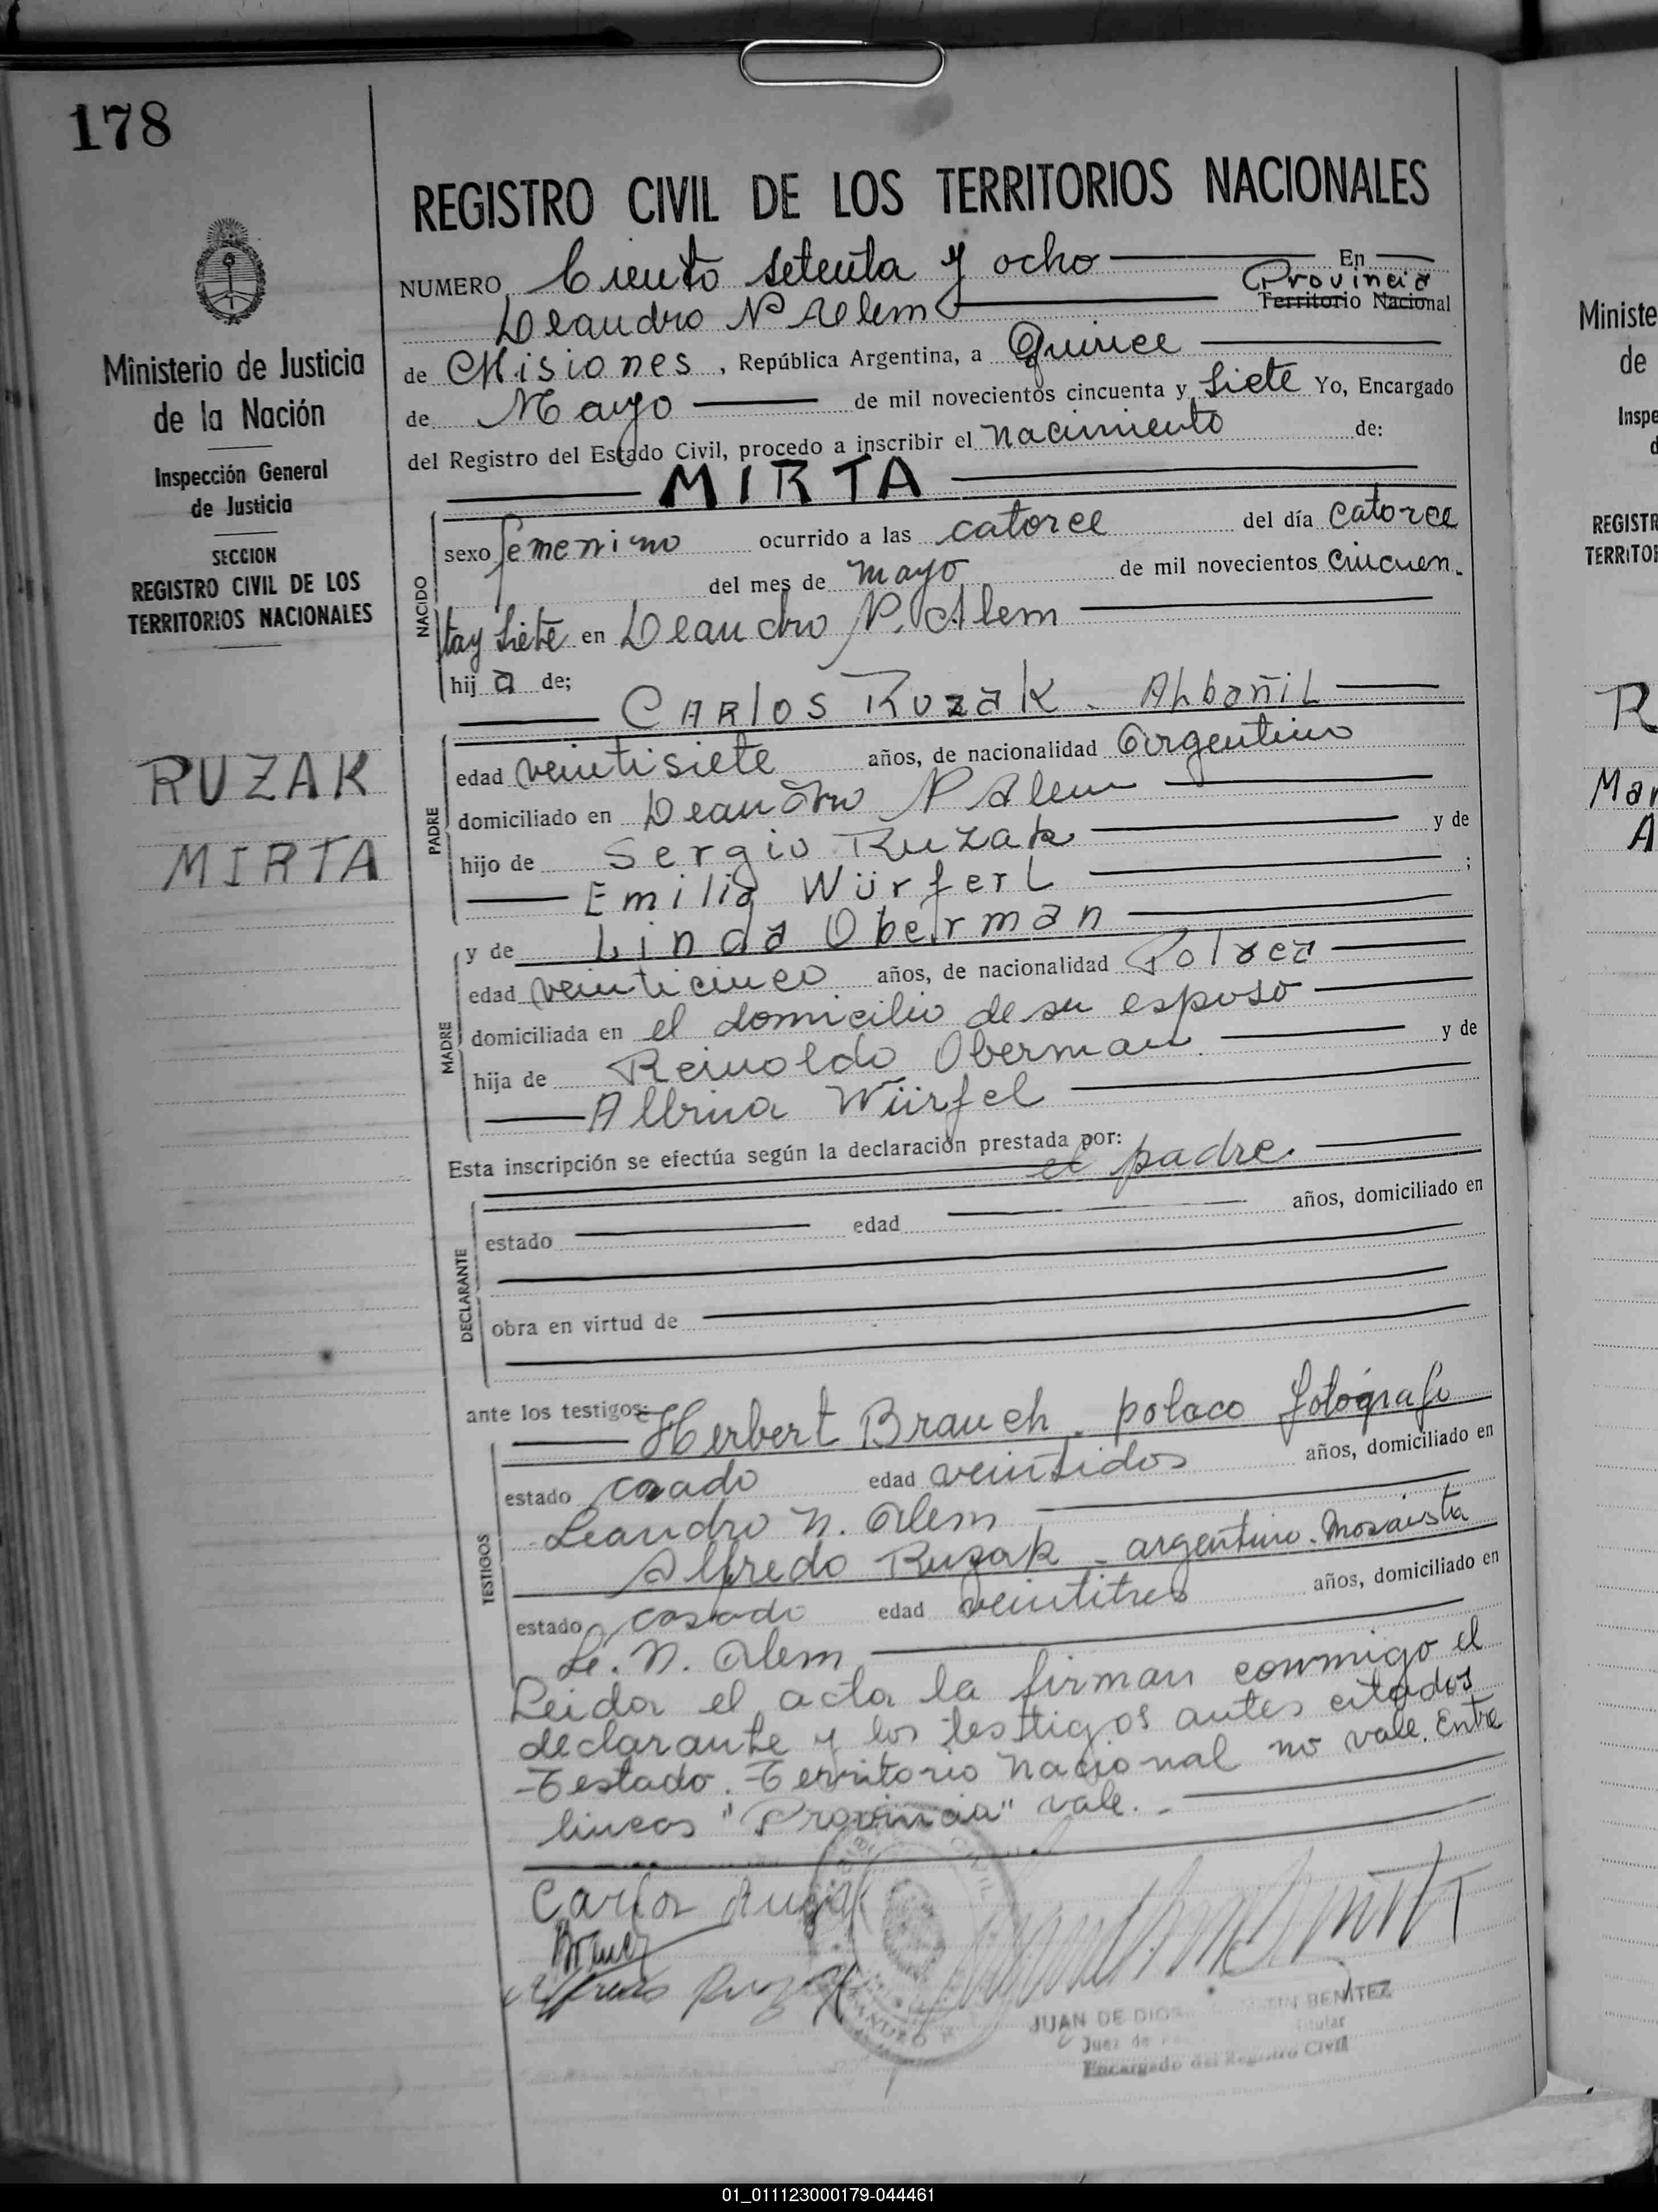 178
REGISTRO CIVIL DE LOS TERRITORIOS NACIONALES
Ministerio de Justicia
de la Nación
Inspección General
de Justicia
SECCION
REGISTRO CIVIL DE LOS
TERRITORIOS NACIONALES
RUZAK
MIRTA
NUMERO Ciento setenta y ocho En
Leandro N Alem Provincia Territorio Nacional
de Misiones, República Argentina, a Quince
de Mayo de mil novecientos cincuenta y Siete Yo, Encargado
del Registro del Estado Civil, procedo a inscribir el nacimiento de:
MIRTA
NACIDO
sexo femenino ocurrido a las catorce del día catorce
del mes de mayo de mil novecientos cincuen
tay siete en Leandro N. Alem
hij a de;
CARlos RuzaK - AlbañiL
PADRE
edad veintisiete años, de nacionalidad Argentino
domiciliado en Leandro N Alem
hijo de Sergio Ruzak y de
Emilia WürferL ;
y de Linda Oberman
MADRE
edad veinticinco años, de nacionalidad Polaca
domiciliada en el domicilio de su esposo
hija de Reinoldo Oberman y de
Albina Würfel
Esta inscripción se efectúa según la declaración prestada por:
el padre.
DECLARANTE
estado edad años, domiciliado en
obra en virtud de
ante los testigos:
Herbert Brauch. polaco fotógrafo
TESTIGOS
estado casado edad veintidos años, domiciliado en
Leandro N. Alem
Alfredo Ruzak - argentino. Mosaista
estado casado edad veintitres años, domiciliado en
Le. N. Alem
Leida el acta la firman conmigo el
declarante y los testtigos antes citados
-Testado. -Territorio Nacional no vale. Entre
lineas "Provincia" vale. -
Carlos Ruzak
Alfredo Ruzak
JUAN DE DIOS TIN BENITEZ
Juez de itular
Encargado del Registro Civil
Ministe
de
Inspe
d
REGISTR
TERRITO
R
Mar
A
01_011123000179-044461